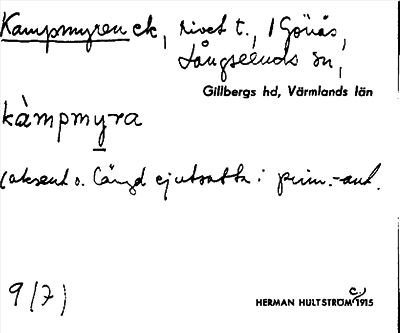 Kampmyren ek, rivet t., 1 Göås,
Långseruds sn,
Gillbergs hd, Värmlands län
kàmpmyra
(aksent o. längd ej utsatta i prim.-ant.
9/7)
HERMAN HULTSTRÖM c:) 1915